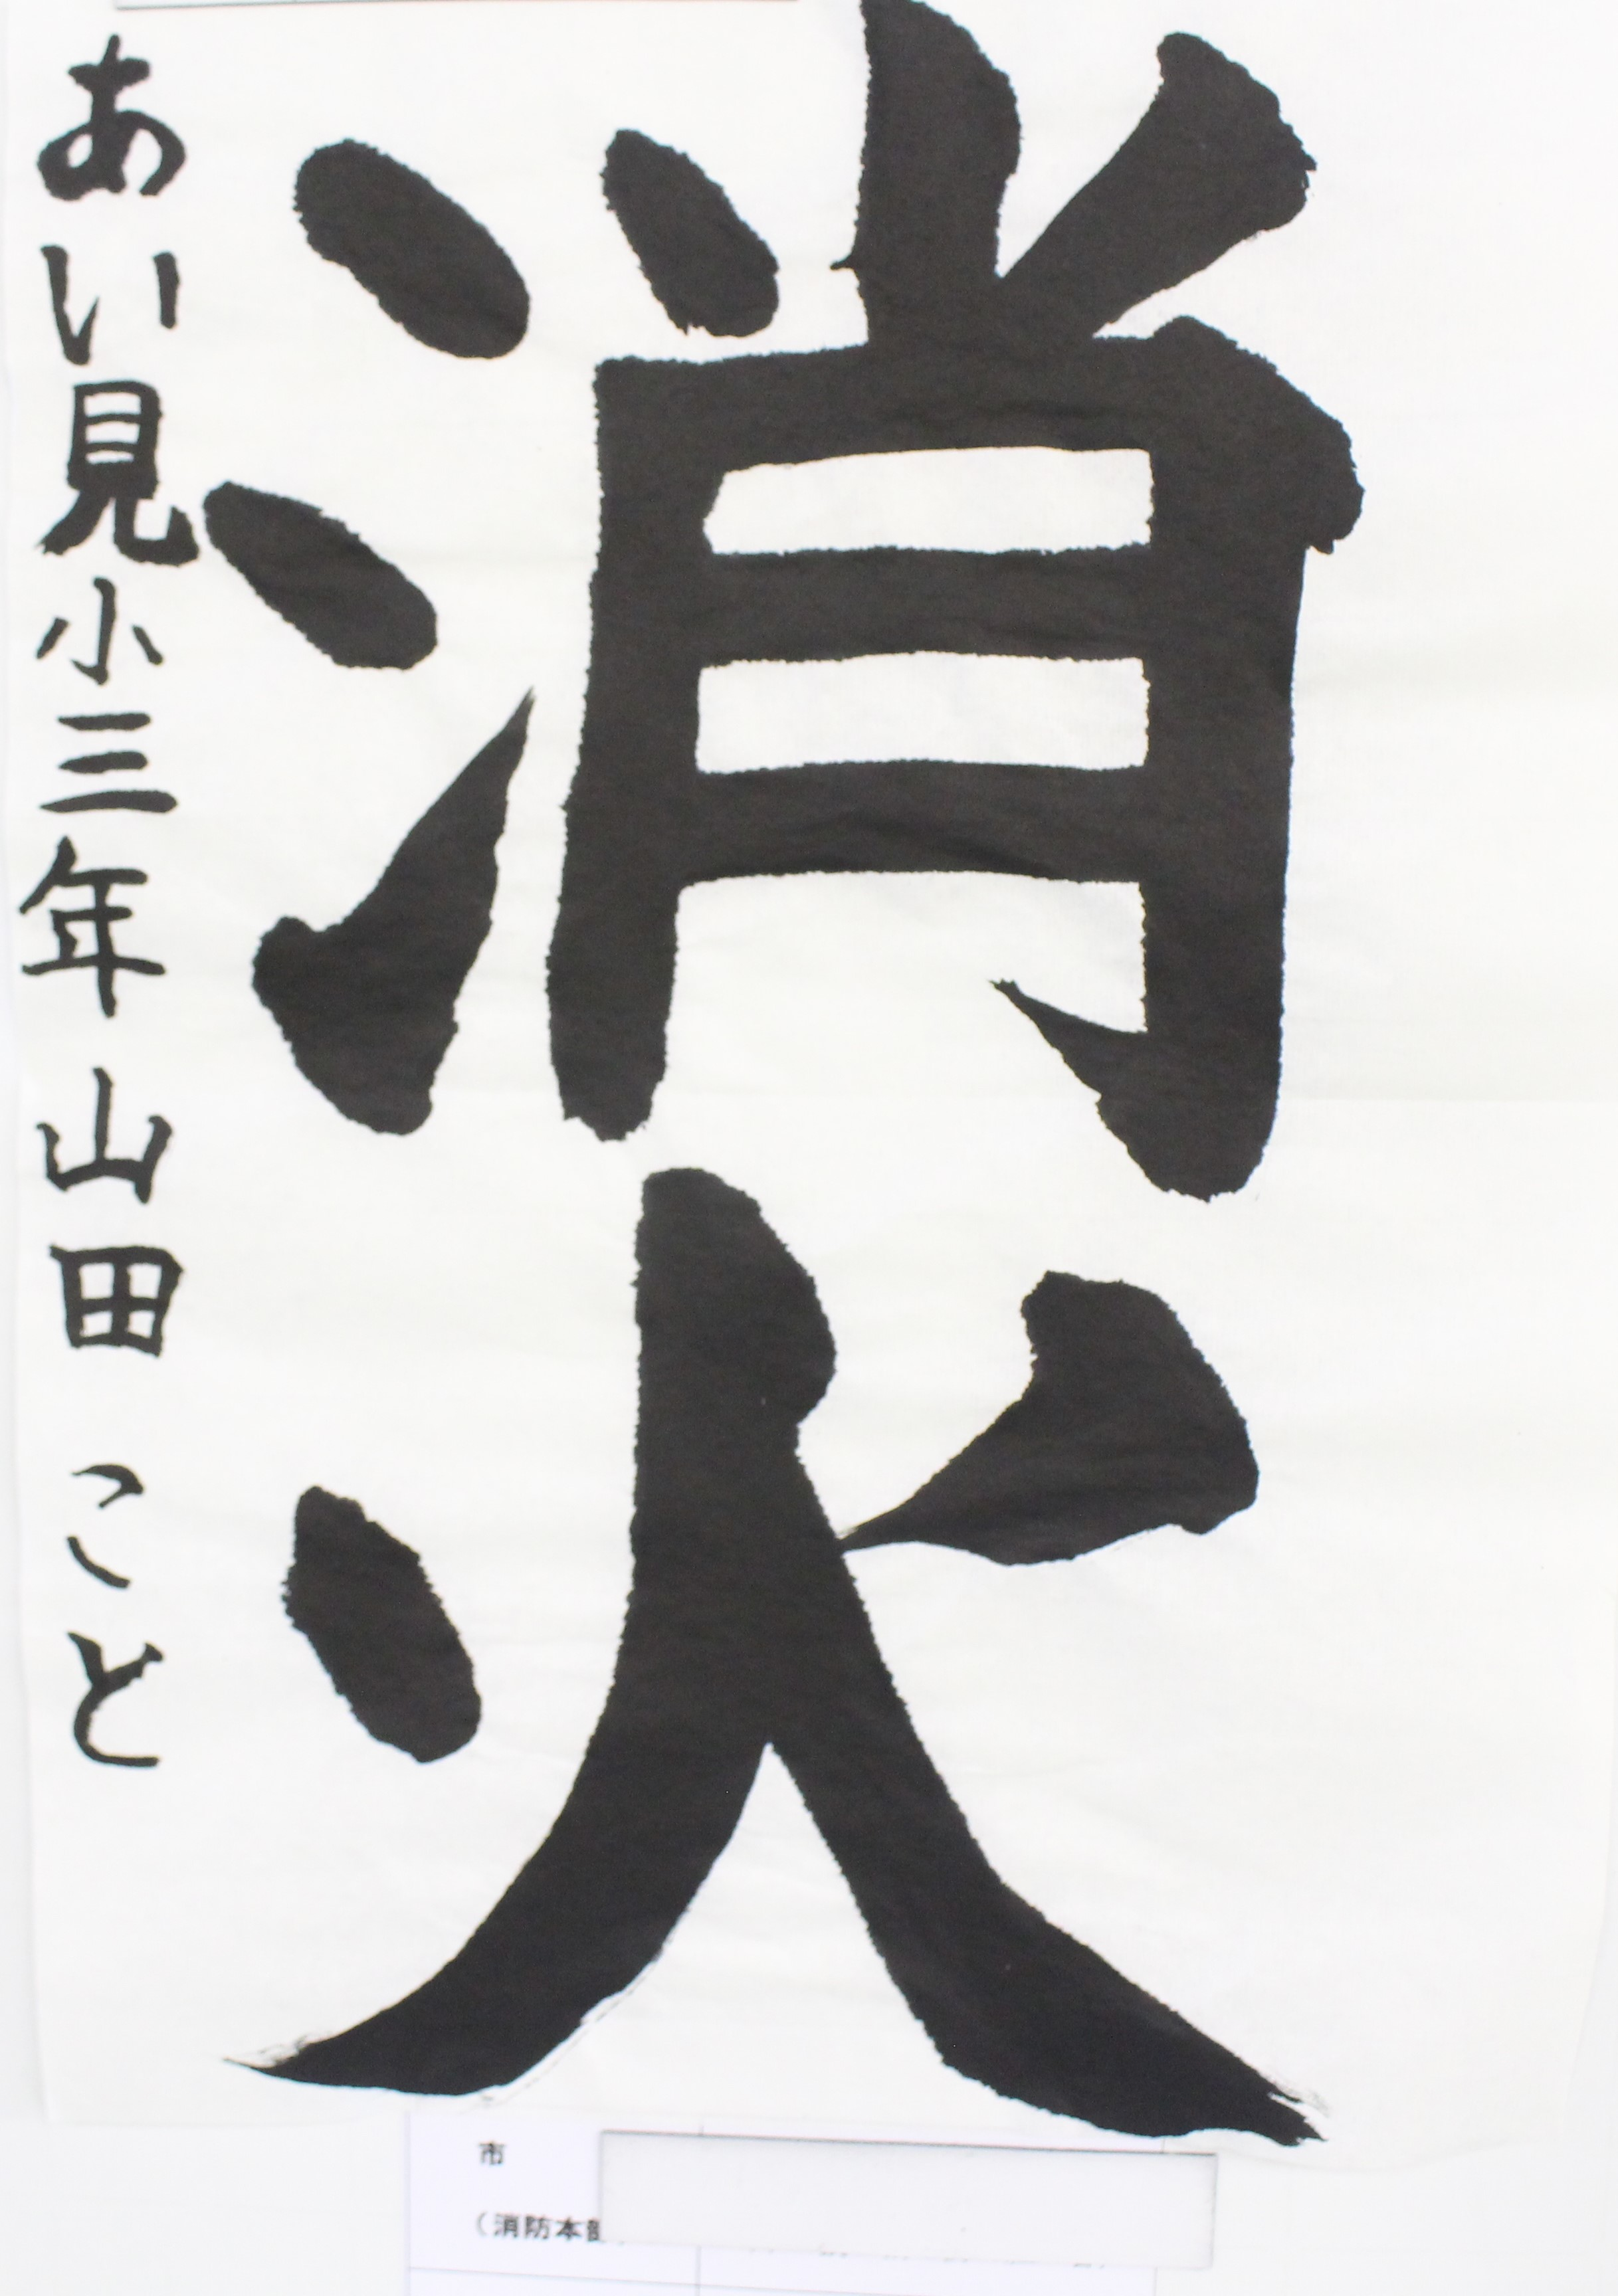 消火
あい見小三年 山田 こと
市
（消防本部